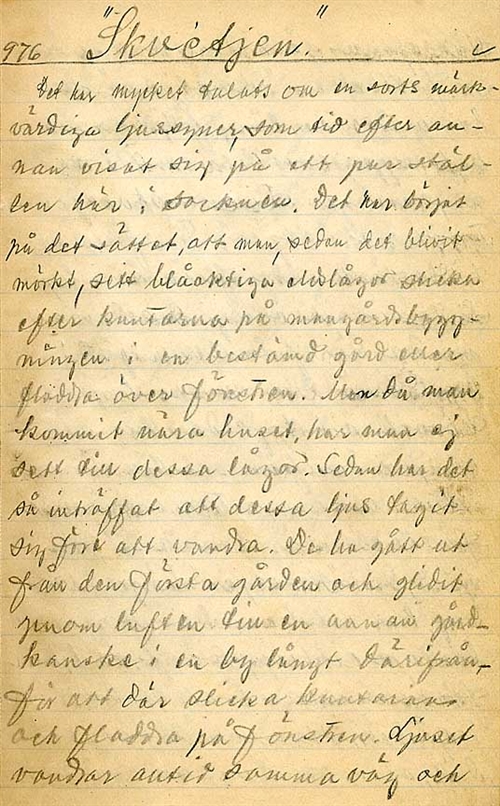 976 "Skvetjen."
Det har mycket talats om en sorts märk-
värdiga ljussyner, som tid efter an-
nan visat sig på ett par stäl-
len här i socknen. Det har börjat
på det sättet, att man, sedan det blivit
mörkt, sett blåaktiga eldlågor slicka
efter knutarna på mangårdsbygg-
ningen i en bestämd gård eller
fladdra över fönstren. Men då man
kommit nära huset, har man ej
sett till dessa lågor. Sedan har det
så inträffat att dessa ljus tagit
sig före att vandra. De ha gått ut
från den första gården och glidit
genom luften till en annan gård
kanske i en by långt därifrån,
för att där slicka knutarna
och fladdra på fönstren. Ljuset
vandrar alltid samma väg och